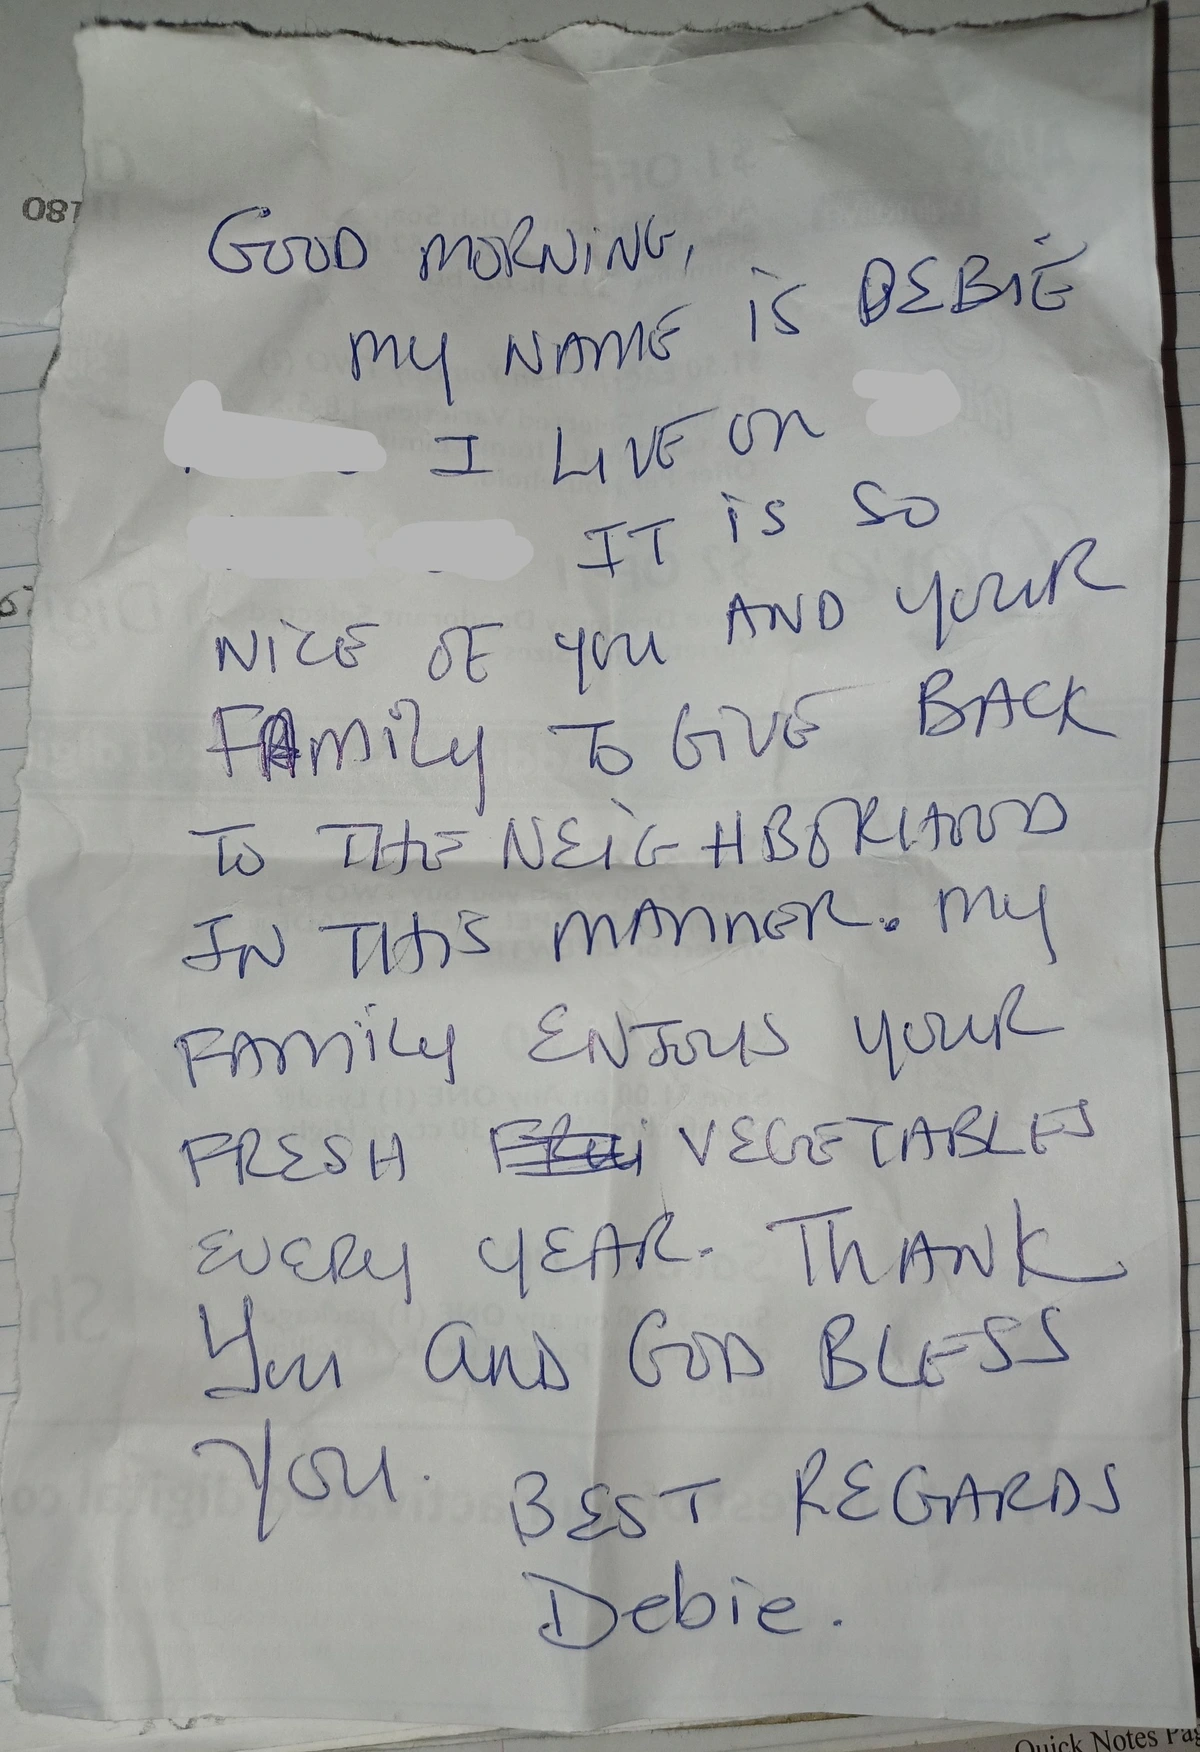 GOOD MORNING,
MY NAME IS DEBIE
I LIVE ON
IT IS SO
NICE OF YOU AND YOUR
FAMILY TO GIVE BACK
TO THE NEIGHBORHOOD
IN THIS MANNER. MY
FAMILY ENJOYS YOUR
FRESH FRUI VEGETABLES
EVERY YEAR. THANK
YOU AND GOD BLESS
YOU.
BEST REGARDS
Debie.
180
Quick Notes